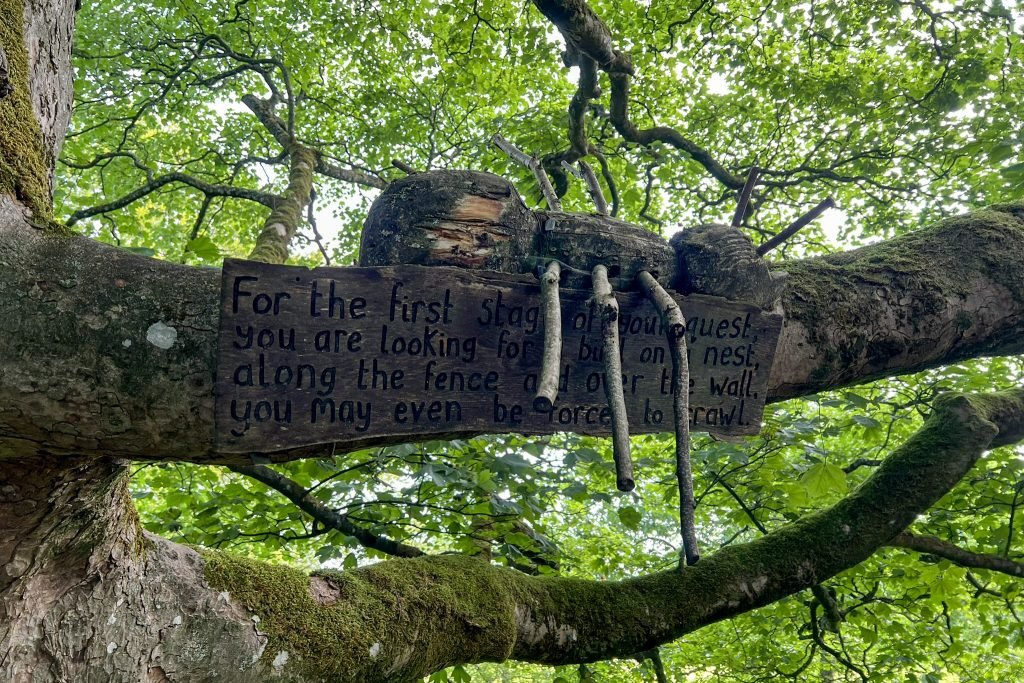 For the first stage of your quest,
you are looking for bird on a nest,
along the fence and over the wall.
you may even be forced to crawl.